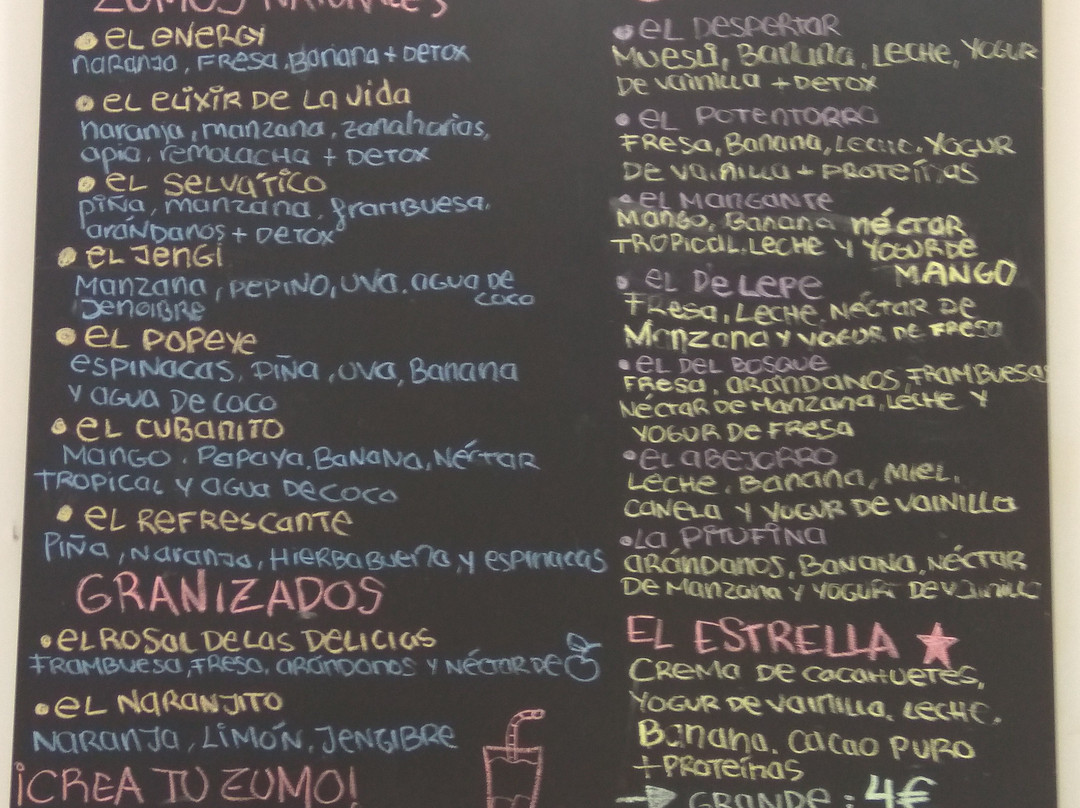 ZUMOS NATURALES
• EL ENERGY
naranja, Fresa, Banana + DETOX
• EL ELIXIR DE La Vida
naranja, manzana, zanahorias,
apio, remolacha + DETOX
• EL SELVáTICO
PIÑA, manzana, frambuesa,
aráNDanos + DETOX
• EL JENGI
Manzana, PEPINO, UVA, agua DE
COCO
JENGIBRE
• EL POPEYE
ESPINACAS, PIÑA, UVA, Banana
Y AGUA DE COCO
• EL CUBANITO
MANGO, PAPAYA, BANANA, NÉCTAR
TROPICAL Y AGUA DE COCO
• EL REFRESCANTE
PIÑA, NARANJA, HIERBABUENA Y ESPINACAS
GRANIZADOS
• EL ROSAL DE LAS DELICIAS
FRAMBUESA, FRESA, aráNDANOS Y NÉCTAR DE
• EL NARANJITO
NARANJA, LIMÓN, JENGIBRE
¡CREA TU ZUMO!
• EL DESPERTAR
MUESLI, BANANA, LECHE, YOGUR
DE vainilla + DETOX
• EL POTENTORRO
FRESA, BANANA, LECHE, YOGUR
DE VAINILLA + PROTEÍNAS
• EL MANGANTE
MANGO, BANANA néctar
TROPICAL, LECHE Y YOGUR DE
MANGO
• EL DE LEPE
FRESA, LECHE, NÉCTAR DE
Manzana Y YOGUR DE FRESA
• EL DEL BOSQUE
FRESA, ARÁNDANOS, FRAMBUESA
NÉCTAR DE Manzana, LECHE Y
YOGUR DE FRESA
• EL ABEJORRO
LECHE, BANANA, MIEL,
CANELA Y YOGUR DE VAINILLA
• LA PITUFINA
ARÁNDANOS, BANANA, NÉCTAR
DE Manzana Y YOGUR DE VAINILLA
EL ESTRELLA ★
CREMA DE CACAHUETES,
YOGUR DE VAINILLA, LECHE,
BANANA, CACAO PURO
+ PROTEÍNAS
→ GRANDE: 4€